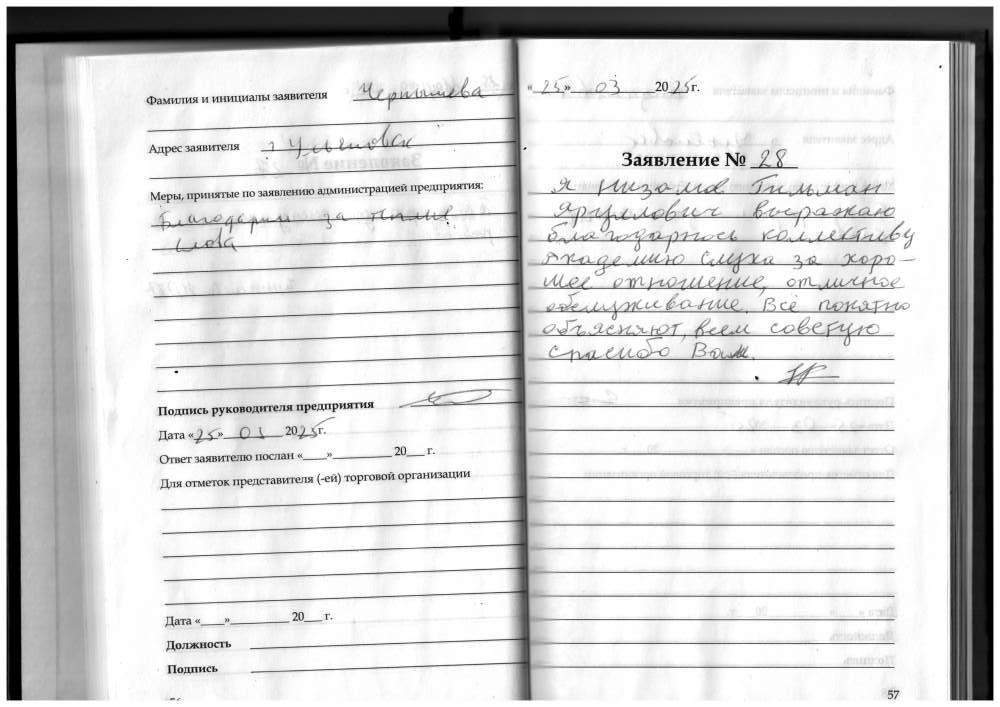 Фамилия и инициалы заявителя Чернышева
Адрес заявителя г Ульяновск
Меры, принятые по заявлению администрацией предприятия:
Благодарим за теплые
слова
Подпись руководителя предприятия
Дата «25» 03 2025г.
Ответ заявителю послан «___»__________ 20___ г.
Для отметок представителя (-ей) торговой организации
Дата «____»__________ 20___ г.
Должность
Подпись
«25» 03 2025г.
Заявление № 28
Я Низамов Гильман
Яруллович выражаю
благодарность коллективу
Академию слуха за хоро-
шее отношение, отличное
обслуживание. Всё понятно
объясняют, всем советую
спасибо Вам.
57